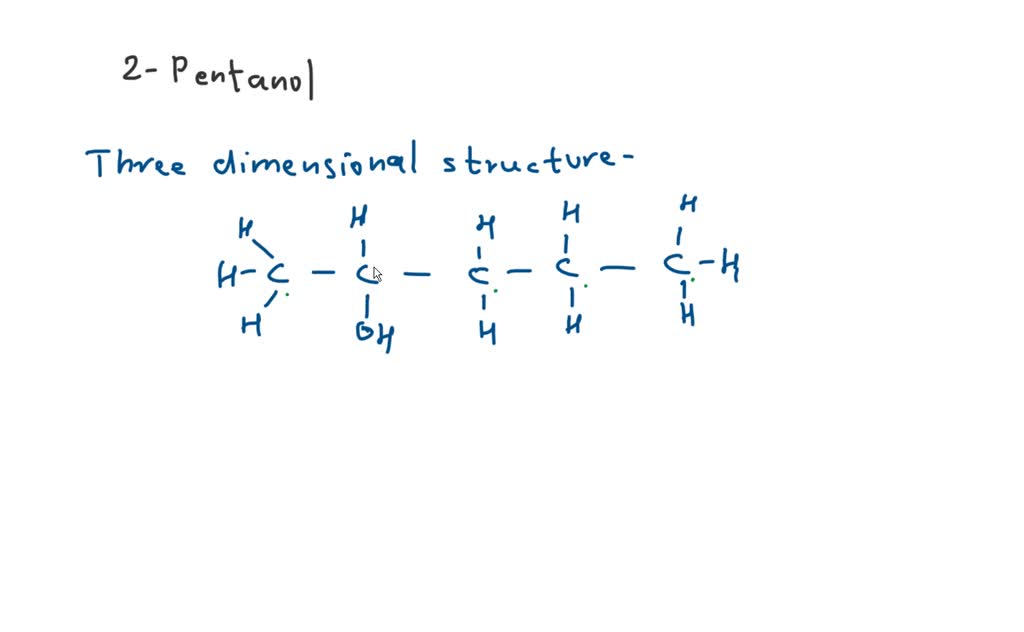 2- Pentanol
Three dimensional structure-
H H H H H
H- C - C - C - C - C -H
H OH H H H